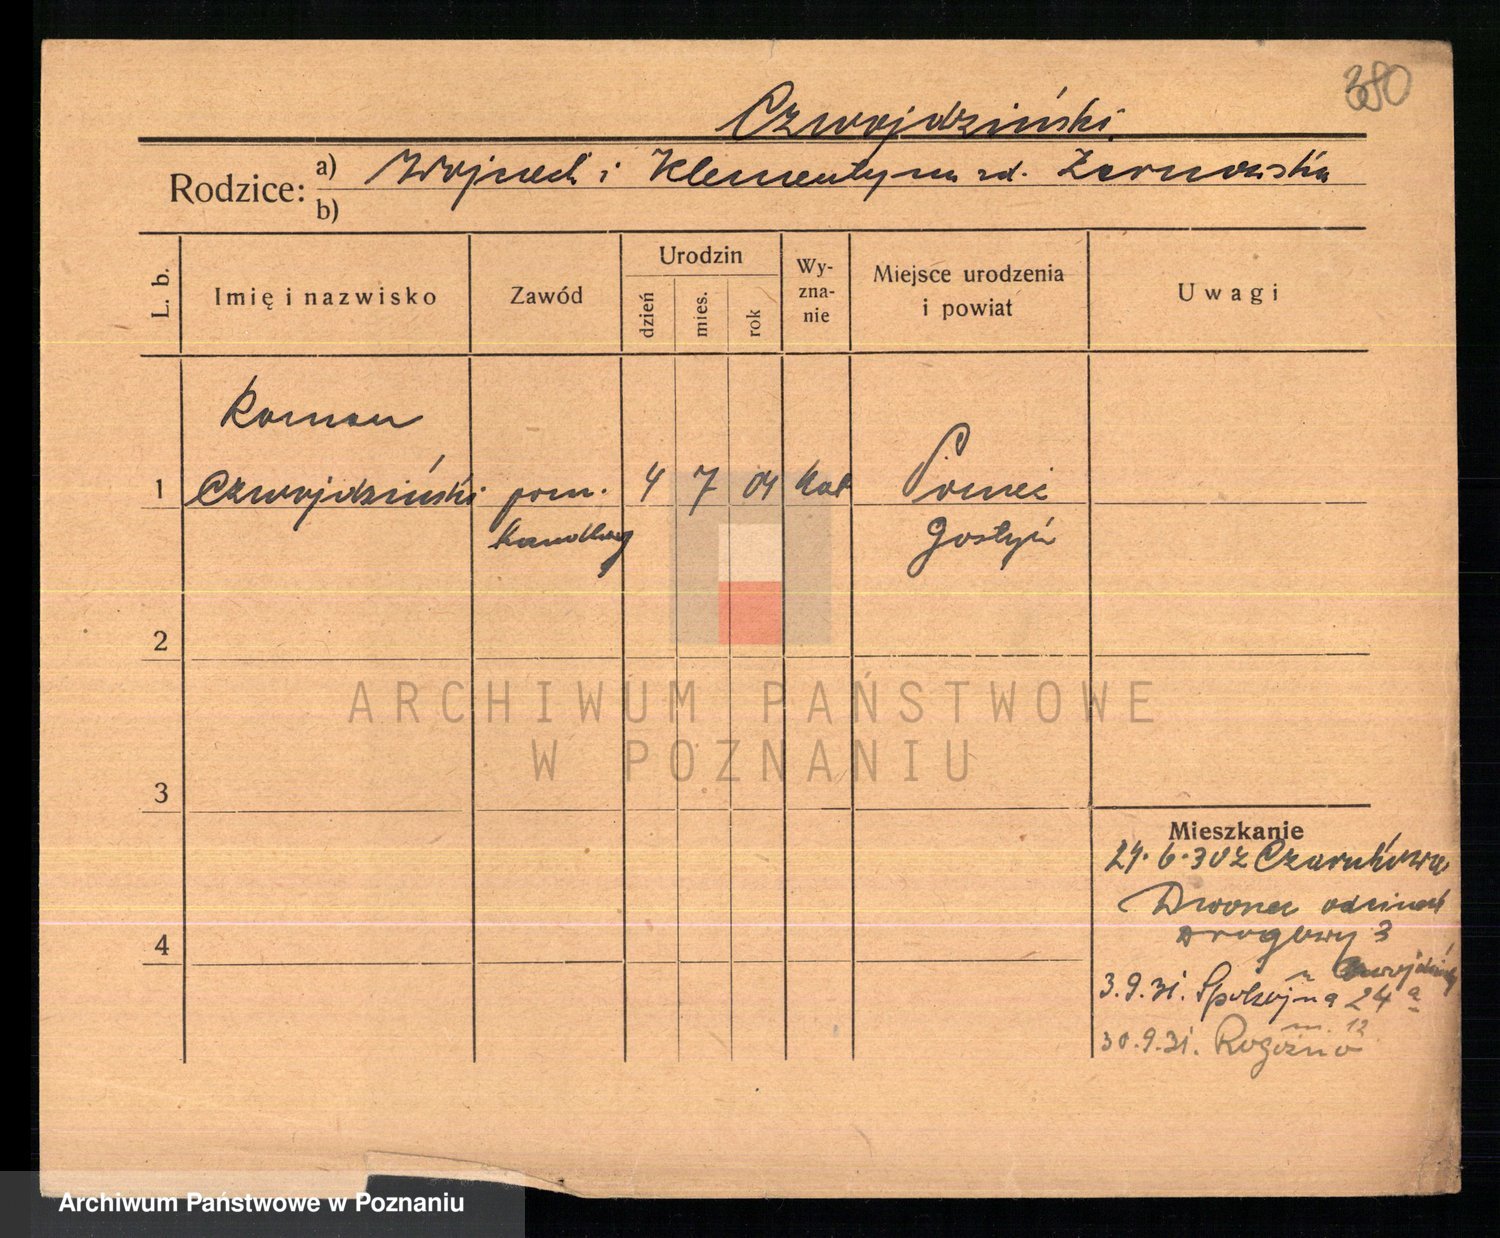 380
Czwojdziński
Rodzice: a) Wojciech i Klementyna zd. Żarnowska
b)
L. b.
Imię i nazwisko
Zawód
Urodzin
dzień
mies.
rok
Wy-
zna-
nie
Miejsce urodzenia
i powiat
Uwagi
Roman
1 Czwojdziński pom. 4 7 04 kat Poniec
handlowy Gostyń
2
ARCHIWUM PAŃSTWOWE
W POZNANIU
3
Mieszkanie
24.6.30 z Czarnkowa
Dworzec odcinek
drogowy 3
4
u Czwojdzińsk
3.9.31. Spokojna 24 a
m. 12
30.9.31. Rogoźno
Archiwum Państwowe w Poznaniu